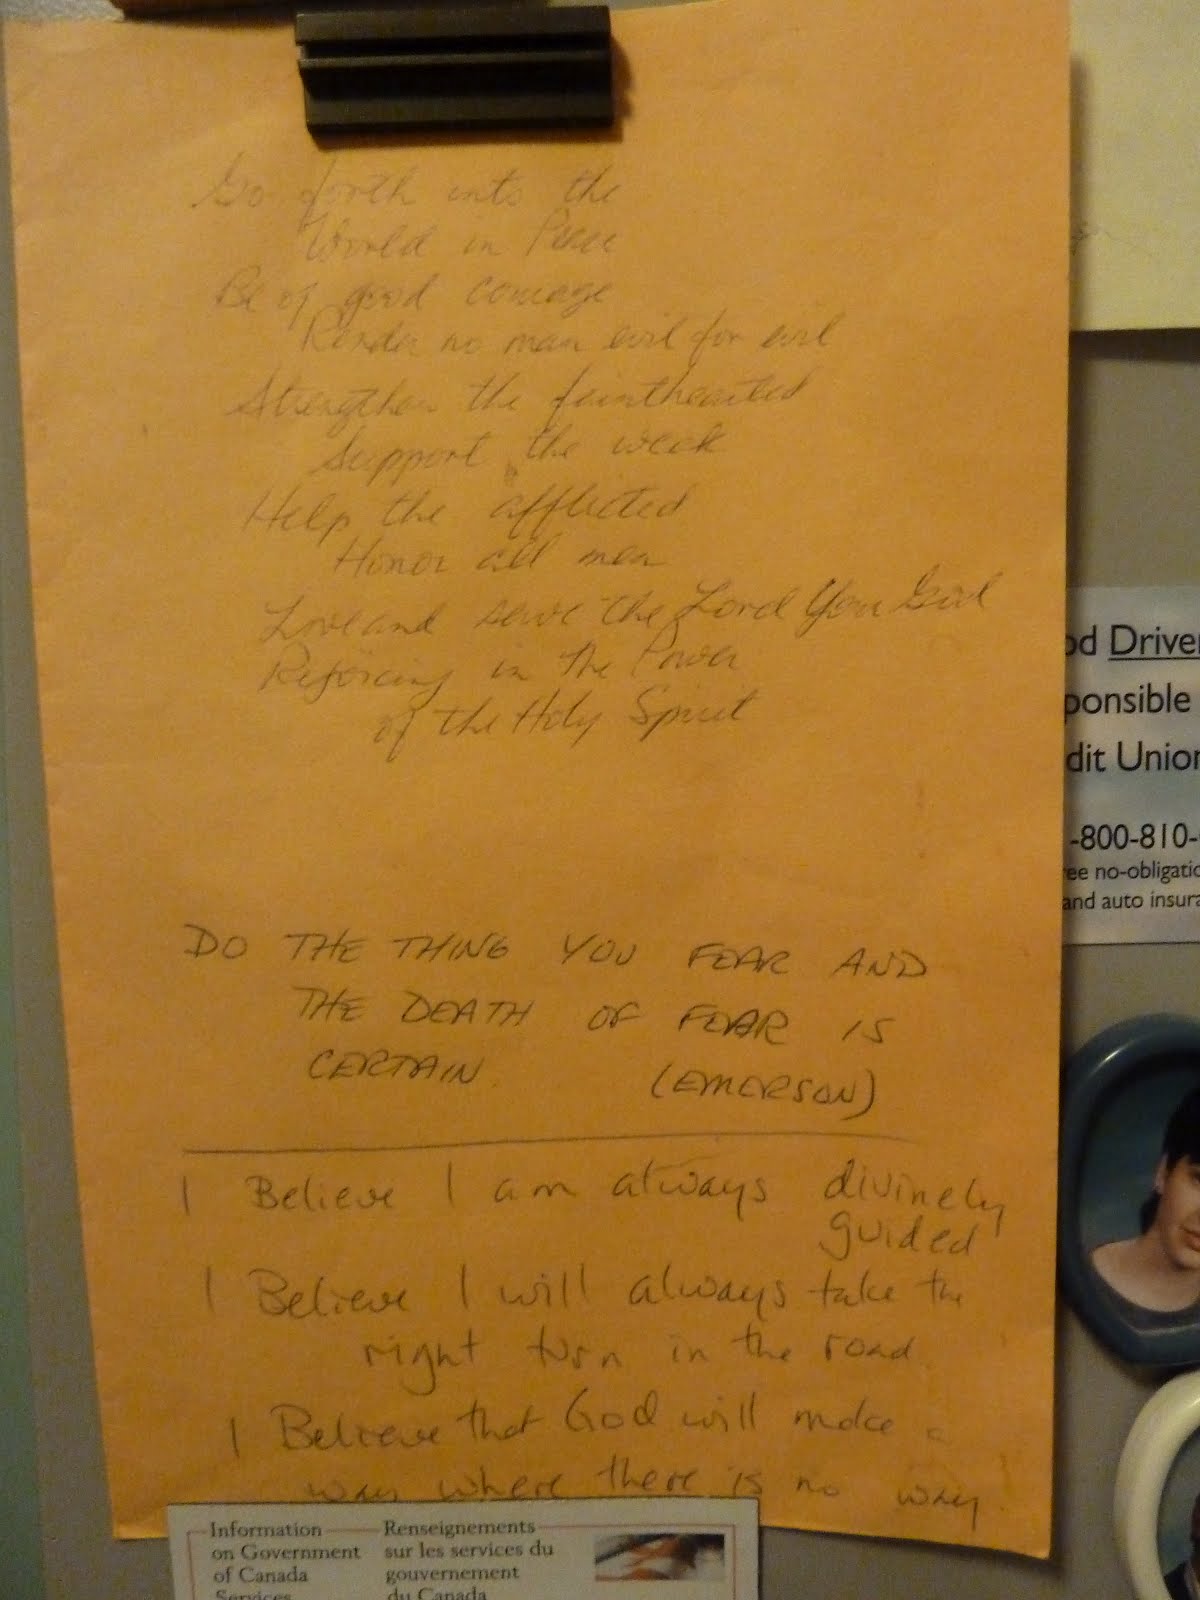 Go forth into the
World in Peace
Be of good courage
Render no man evil for evil
Strengthen the fainthearted
Support the weak
Help the afflicted
Honor all men
Love and serve the Lord You God
Rejoicing in the Power
of the Holy Spirit
DO THE THING YOU FEAR AND
THE DEATH OF FEAR IS
CERTAIN. (EMERSON)
I Believe I am always divinely
guided
I Believe I will always take the
right turn in the road.
I Believe that God will make a
way where there is no way.
Information
on Government
of Canada
Services
Renseignements
sur les services du
gouvernement
du Canada
od Driver
ponsible
dit Union
-800-810-
ee no-obligatio
and auto insura